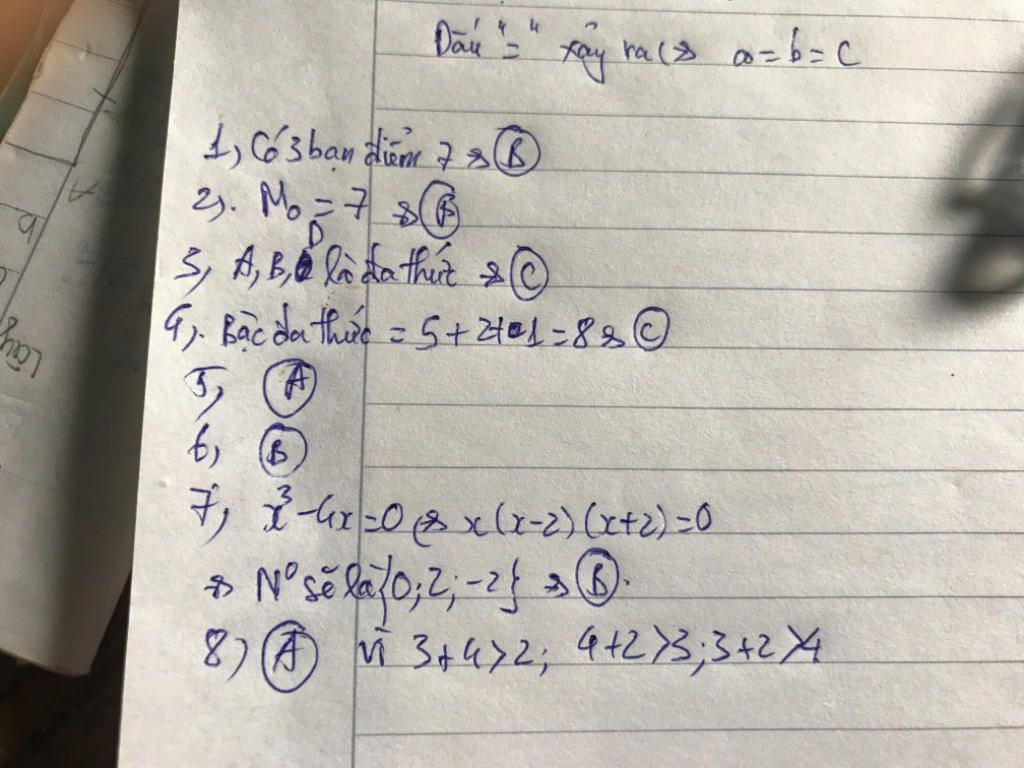 Dấu "=" xảy ra (=> a=b=c
1, Có 3 bạn điểm 7 => B
2). M₀ = 7 => B
3, A, B, D là đa thức => C
4). Bậc đa thức = 5+2+1=8 => C
5, A
6, B
7, x³-4x=0 (=> x(x-2)(x+2)=0
=> N⁰ sẽ là {0;2;-2} => B.
8) A vì 3+4>2; 4+2>3; 3+2>4